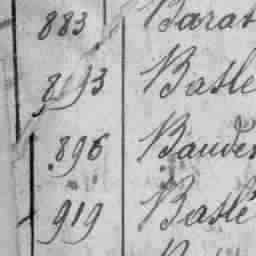 883 Baras
893 Basle
896 Baude
919 Baslé